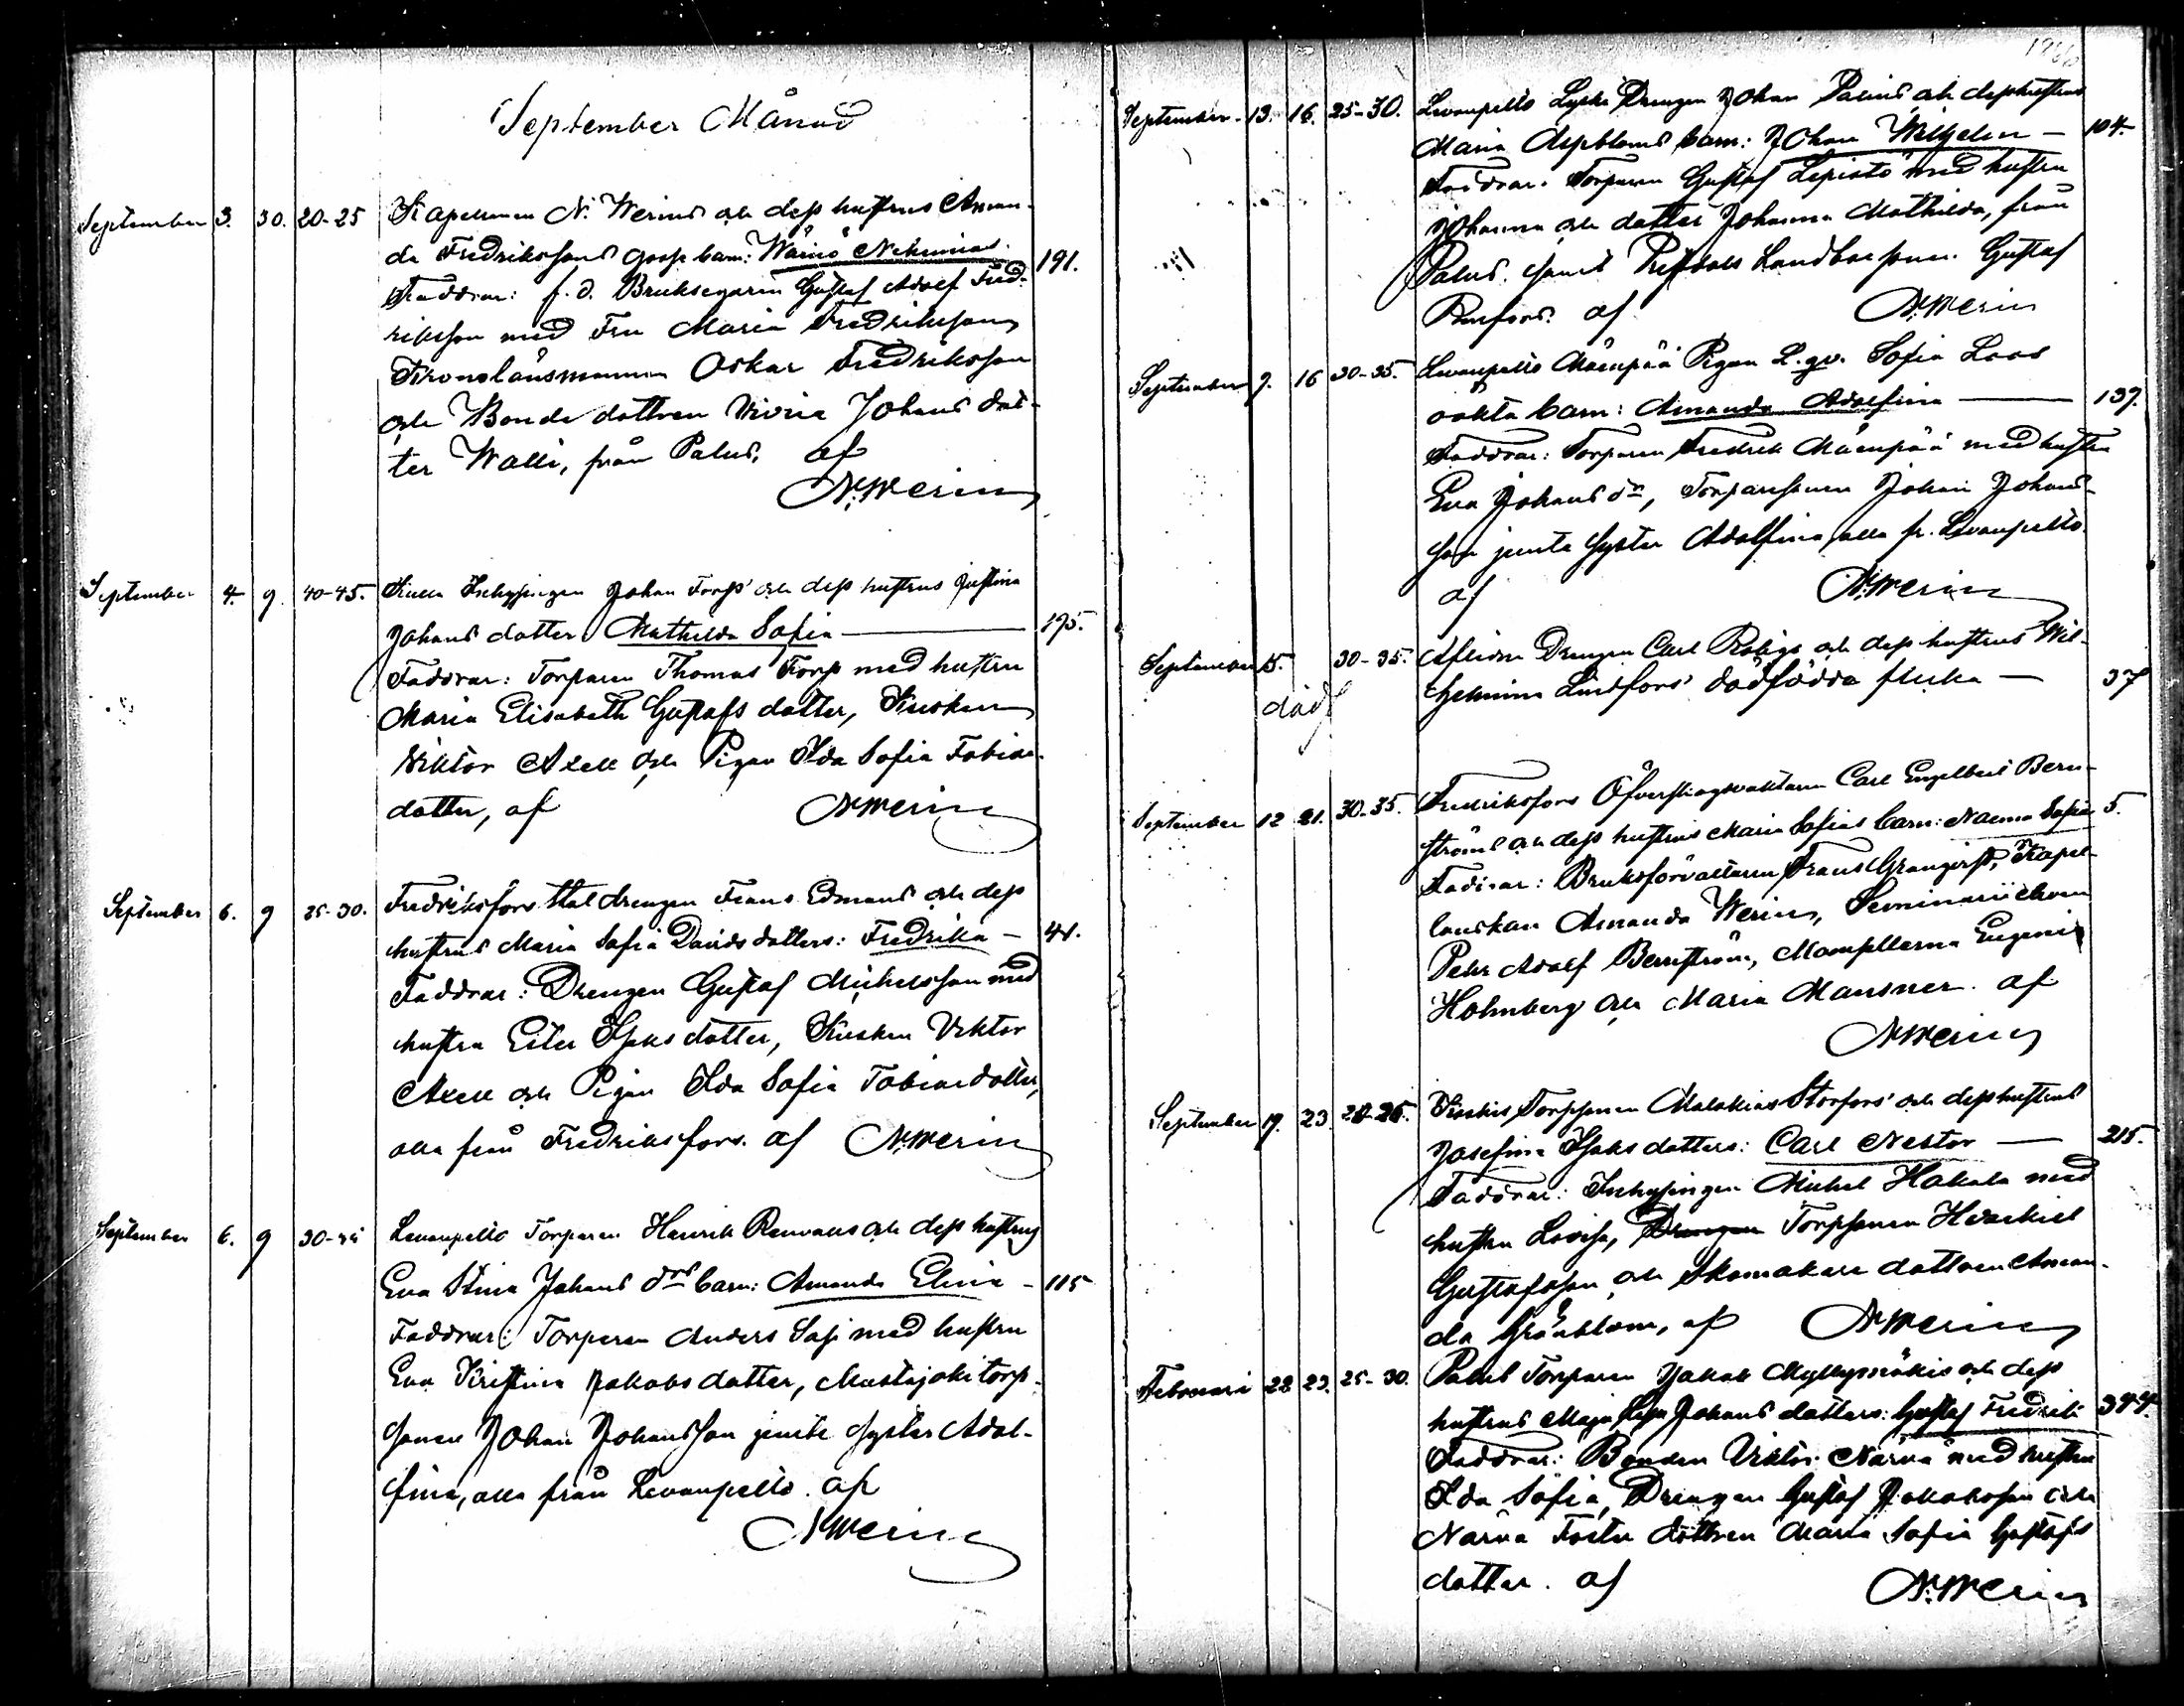 September Månad
September 3. 30. 20-25 Kapellanen N. Werins och dess hustrus Aman-
da Fredrikssons gosse barn: Wäinö Nehemias. 191.
Faddrar: f.d. Bruksegaren Gustaf Adolf Fred-
riksson med Fru Maria Fredriksson,
Kronolänsmannen Oskar Fredriksson
och Bonde dottren Johans dot-
ter Walli, från Palus, af
N. Werin
September 4. 9. 40-45. Inhysingen Johan Torps och dess hustrus Justina
Johans dotter Mathilda Sofia 195.
Faddrar: Torparen Thomas Torp med hustru
Maria Elisabeth Gustafs dotter, Kusken
Viktor Axell och Pigan Ida Sofia Tobias
dotter, af N. Werin
September 6. 9 25-30. Fredriksfors Stal drengen Frans Edmans och dess
hustrus Maria Sofia Davids dotters: Fredrika 41.
Faddrar: Drengen Gustaf Michelsson med
hustru Ester Isaks dotter, Kusken Viktor
Axell och Pigan Ida Sofia Tobias dotter,
alla från Fredriksfors. af N. Werin
September 6. 9 30-35 Levanpelto Torparen Henrik Renvalls och dess hustrus
Eva Stina Johans drs barn: Amanda Elina 115
Faddrar: Torparen Anders Sasi med hustru
Eva Kristina Jakobs dotter, Mustajoki torp-
sonen Johan Johansson jemte syster Adol-
fina, alla från Levanpelto. af
N Werin
1866
September 13. 16. 25-30. Levanpelto Drengen Johan Palins och dess hustrus
Maria Aspbloms barn: Johan Wilhelm 104.
Faddrar. Torparen Gustaf Lepistö med hustru
Johanna och dotter Johanna Mathilda, från
Palus. samt Landbosonen Gustaf
af N. Werin
September 9. 16 30-35. Levanpelto Mäenpää Pigan L. qv. Sofia Laos
oäkta barn: Amanda Adolfina 139.
Faddrar: Torparen Fredrik Mäenpää med hustru
Eva Johans dr, Torparesonen Johan Johans-
son jemte syster Adolfina, alla fr. Levanpelto.
af N. Werin
September 15. 30-35. Aflidne Drengen Carl och dess hustrus Wil-
helmina Lindfors' dödfödda flicka 37
död
September 12 21. 30-35. Fredriksfors Öfverskogvaktaren Carl Engelbert Bern-
ströms och dess hustrus Maria Sofias barn: Naema Sofia 5.
Faddrar: Bruksförvaltaren Frans Granqvist, Kapel-
lanskan Amanda Werin, Seminarii eleven
Pehr Adolf Bernström, Mamsellerna Eugenie
Holmberg och Maria Mansner. af
N Werin
September 19. 23. 20-25. Torpsonen Malakias Storfors' och dess hustrus
Josefina Isaks dotters: Carl Nestor 215.
Faddrar: Inhysingen Michel Hakala med
hustru Lovisa, Drengen Torpsonen Heseekiel
Gustafsson och Skomakare dottren Aman-
da Grönblom, af N Werin
Februari 22 23. 25-30. Palus Torparen Jakob Myllymäkis och dess
hustrus Maja Johans dotters: Gustaf Fredrik 344.
Faddrar: Bonden Viktor Närvä med hustru
Ida Sofia, Drengen Gustaf Jakobsson och
Närvä Foster dottren Maria Sofia Gustafs
dotter. af N. Werin